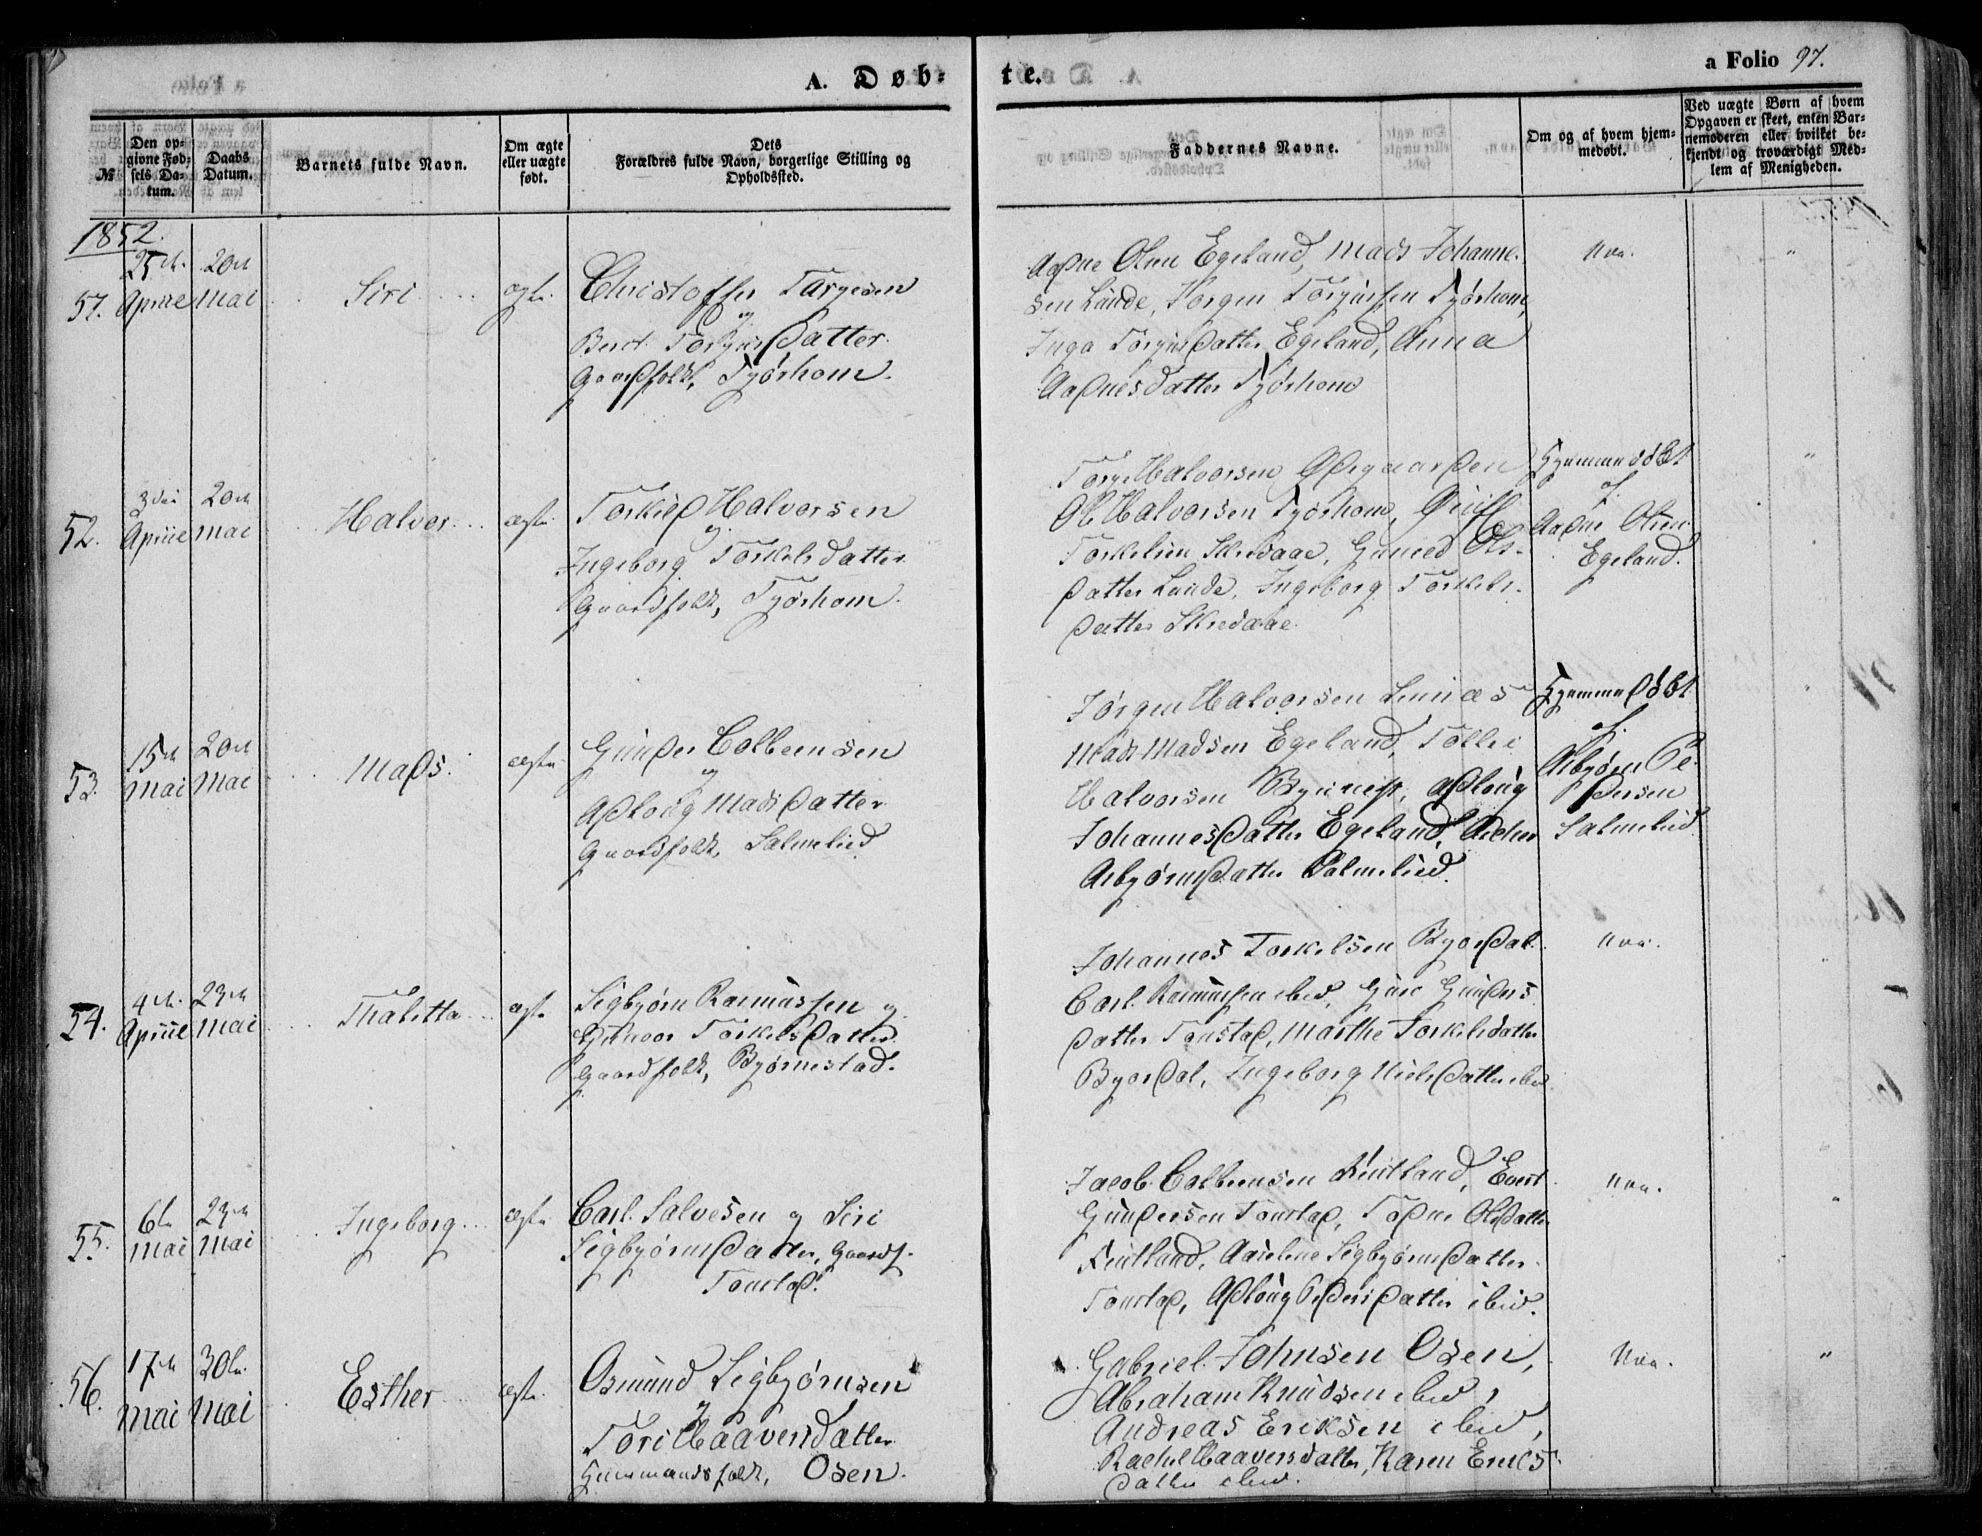 A. Døb-
te.
a Folio 97.
№
Den op-
givne Fød-
sels Da-
tum.
Daabs
Datum.
Barnets fulde Navn.
Om ægte
eller uægte
født.
Dets
Forældres fulde Navn, borgerlige Stilling og
Opholdssted.
Faddernes Navne.
Om og af hvem hjem-
medøbt.
Ved uægte Børn af hvem
Opgaven er skeet, enten Bar-
nemoderen eller hvilket be-
kjendt og troværdigt Med-
lem af Menigheden.
1852.
51.
25de
Apriie
20de
Mai
Siri
ægte
Christoffer Targesen
og
Berit Torgiusdatter
Gaardfolk, Tjørhom.
Aadne Olsen Egeland, Mads Johanne-
sen Lunde, Torgiussen Tjørhom,
Inga Torgiusdatter Egeland, Anna
Aadnesdatter Tjørhom
Nei.
52.
3die
Apriie
20de
Mai
Halvor
ægte
Torkild Halvorsen
og
Ingeborg Torkelsdatter
Gaardfolk, Tjørhom.
Torge Halvorsen Ødegaarden
Ole Halvorsen Tjørhom,
Torkelsen Skredaae, Guned Ols-
datter Lunde, Ingeborg Torkels-
datter Skredaae.
Hjemmedøbt
af
Aadne Olsen
Egeland.
53.
15de
Mai
20de
Mai
Mads.
ægte
Gunder Colbeensen
og
Adloug Madsdatter
Gaardfolk, Salmelied
Jørgen Halvorsen
Mads Madsen Egeland, Tollei
Halvorsen, Adloug
Johannesdatter Egeland,
Asbjørnsdatter Salmelied.
Hjemmedøbt
af
Asbjørn Pe-
dersen
Salmelied
54.
4de
Apriie
23de
Mai
Thalitta
ægte
Sigbjørn Rasmussen og
Gunvor Torkelsdatter
Gaardfolk, Bjørnestad.
Johannes Torkelsen Byordal
Carl Rasmussen ibid, Guro Gunders-
datter Tonstad, Marthe Torkelsdatter
Byordal, Ingeborg Nielsdatter ibid
Nei.
55.
6te
Mai
23de
Mai
Ingeborg
ægte
Carl Salvesen og Siri
Sigbjørnsdatter, Gaardf.
Tonstad.
Jacob Colbeensen Fintland, Evert
Gundersen Tonstad, Todne Olsdatter
Fintland, Sigbjørnsdatter
Tonstad, Adloug Pedersdatter ibid.
Nei.
56.
17de
Mai
30te
Mai
Esther
ægte
Osmund Sigbjørnsen
og
Tori Haaversdatter
Huusmandsfolk, Osen.
Gabriel Johnsen Osen,
Abraham Knudsen ibid,
Andreas Eriksen ibid,
Rachel Haaversdatter, Karen Eriks-
datter ibid.
Nei.